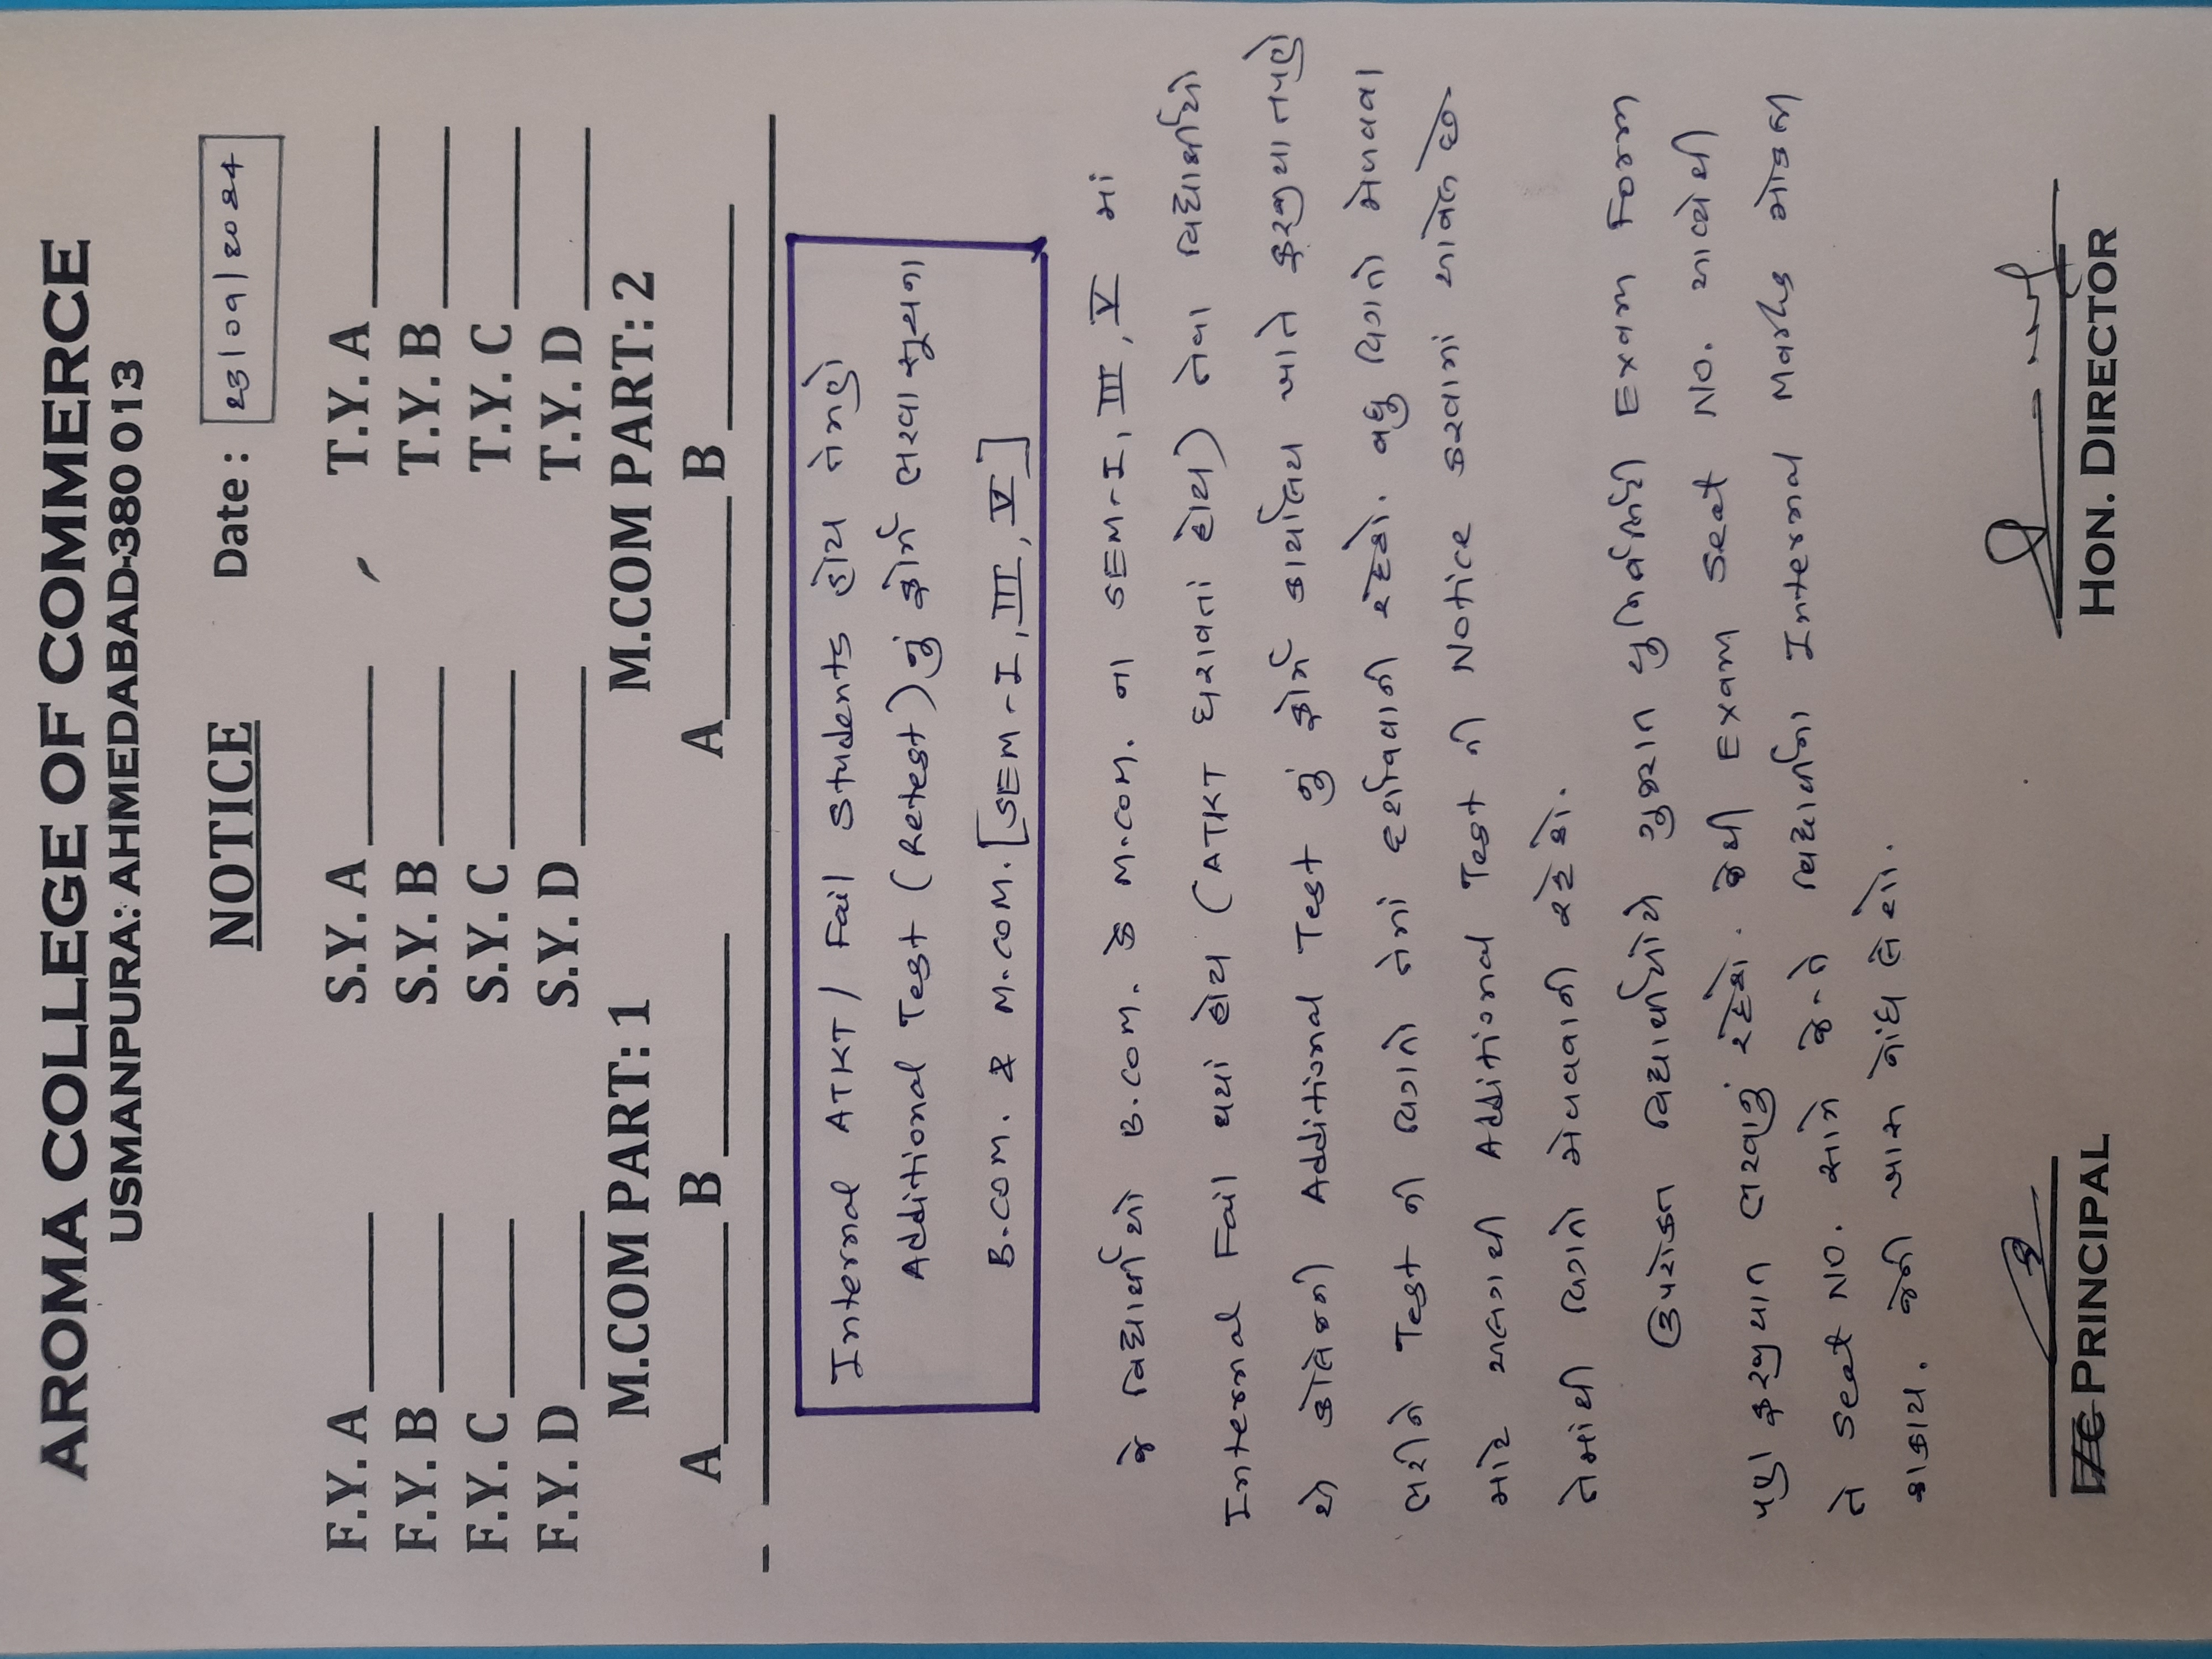 AROMA COLLEGE OF COMMERCE
USMANPURA: AHMEDABAD-380 013
NOTICE Date: 23/09/2024
F.Y. A S.Y. A T.Y. A
F.Y. B S.Y. B T.Y. B
F.Y. C S.Y. C T.Y. C
F.Y. D S.Y. D T.Y. D
M.COM PART: 1 M.COM PART: 2
A B A B
Internal ATKT / Fail Students હોય તેમણે
Additional Test (Retest) નું ફોર્મ ભરવા સૂચના
B.COM. & M.COM. [SEM-I, III, V]
જે વિદ્યાર્થીઓ B.COM. કે M.COM. ના SEM-I, III, V માં
Internal Fail થયાં હોય (ATKT ધરાવતાં હોય) તેવા વિદ્યાર્થીઓ
એ કોલેજની Additional Test નું ફોર્મ કાર્યાલય ખાતે ફરજીયાતપણે
ભરીને Test ની વિગતો તેમાં દર્શાવવાની રહેશે. વધુ વિગતો મેળવવા
માટે અલગથી Additional Test ની Notice કરવામાં આવેલ છે
તેમાંથી વિગતો મેળવવાની રહેશે.
ઉપરોક્ત વિદ્યાર્થીઓએ ગુજરાત યુનિવર્સિટી Exam Form
પણ ફરજીયાત ભરવાનું રહેશે. જેથી Exam Seat NO. આવ્યેથી
તે Seat NO. સામે જે-તે વિદ્યાર્થીના Internal Marks મોકલી
શકાય. જેની ખાસ નોંધ લેશો.
PRINCIPAL HON. DIRECTOR